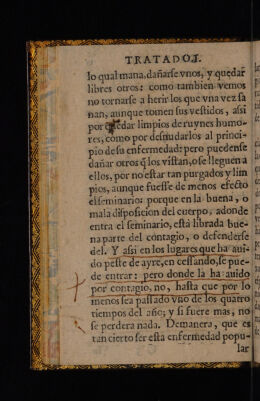 TRATADO I.
lo qual mana, dañarse vnos, y quedar
libres otros: como tambien vemos
no tornarse a herir los que vna vez sa
nan, aunque tomen sus vestidos, assi
por quedar limpios de ruynes humo-
res, como por desnudarlos al princi-
pio de su enfermedad: pero puedense
dañar otros q̃ los vistan, o se lleguen a
ellos, por no estar tan purgados y lim
pios, aunque fuesse de menos efecto
el seminario: porque en la buena, o
mala disposicion del cuerpo, adonde
entra el seminario, està librada bue-
na parte del contagio, o defenderse
del. Y assi en los lugares que ha aui-
do peste de ayre, en cessando, se pue-
de entrar: pero donde la ha auido
por contagio, no, hasta que por lo
menos sea passado vno de los quatro
tiempos del año; y si fuere mas, no
se perdera nada. Demanera, que es
tan cierto ser esta enfermedad popu-
lar